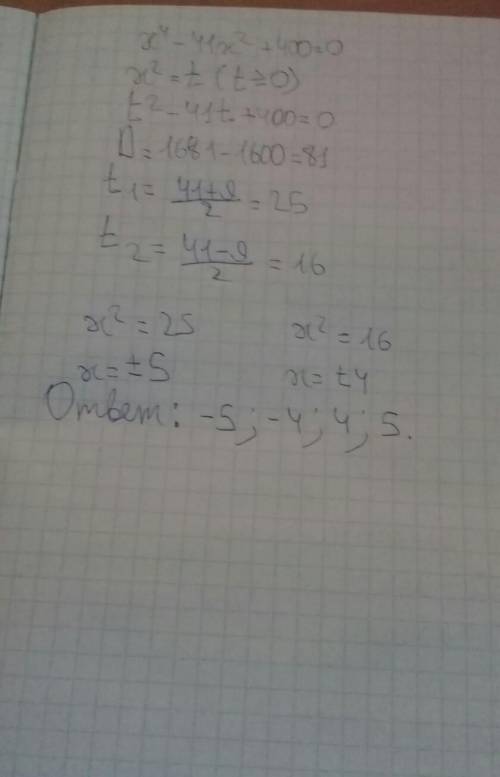 x⁴-41x²+400=0
x²=t (t≥0)
t²-41t+400=0
D=1681-1600=81
t₁= (41+9)/2 =25
t₂= (41-9)/2 =16
x²=25 x²=16
x=±5 x=±4
Ответ: -5; -4; 4; 5.